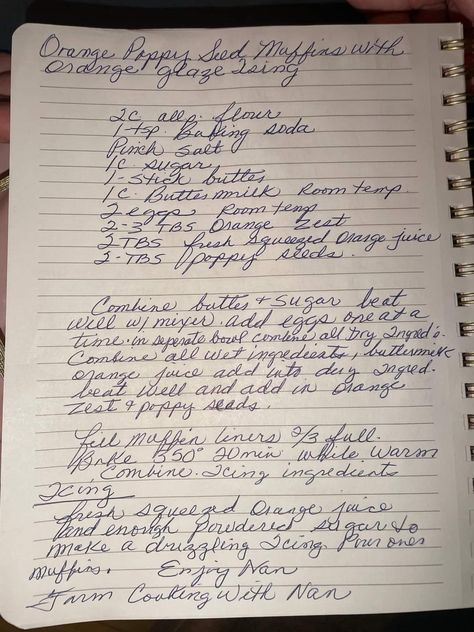 Orange Poppy Seed Muffins with
Orange glaze Icing
2c all p. flour
1-tsp. Baking soda
Pinch salt
1c. sugar
1-stick butter
1c. Buttermilk Room temp.
2-eggs Room temp
2-3 TBS Orange Zest
2-TBS fresh squeezed Orange juice
2-TBS poppy seeds.
Combine butter & sugar beat
well w/ mixer. add eggs one at a
time. in seperate bowl combine all dry Ingred's.
Combine all wet ingredients, buttermilk
orange juice add into dry Ingred.
beat well and add in orange
zest & poppy seeds.
fill muffin liners 2/3 full.
Bake 350° 20min while warm
Combine Icing ingredients
Icing
fresh squeezed Orange juice
and enough powdered sugar to
make a druzzling Icing. Pour over
muffins. Enjoy Nan
Farm Cooking With Nan